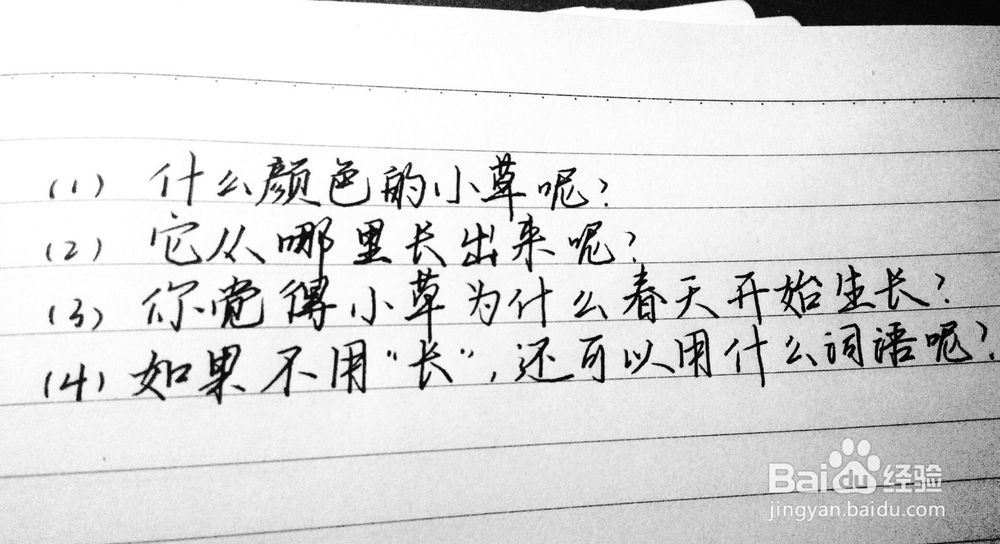 (1) 什么颜色的小草呢?
(2) 它从哪里长出来呢?
(3) 你觉得小草为什么春天开始生长?
(4) 如果不用"长",还可以用什么词语呢?
Baidu经验
jingyan.baidu.com